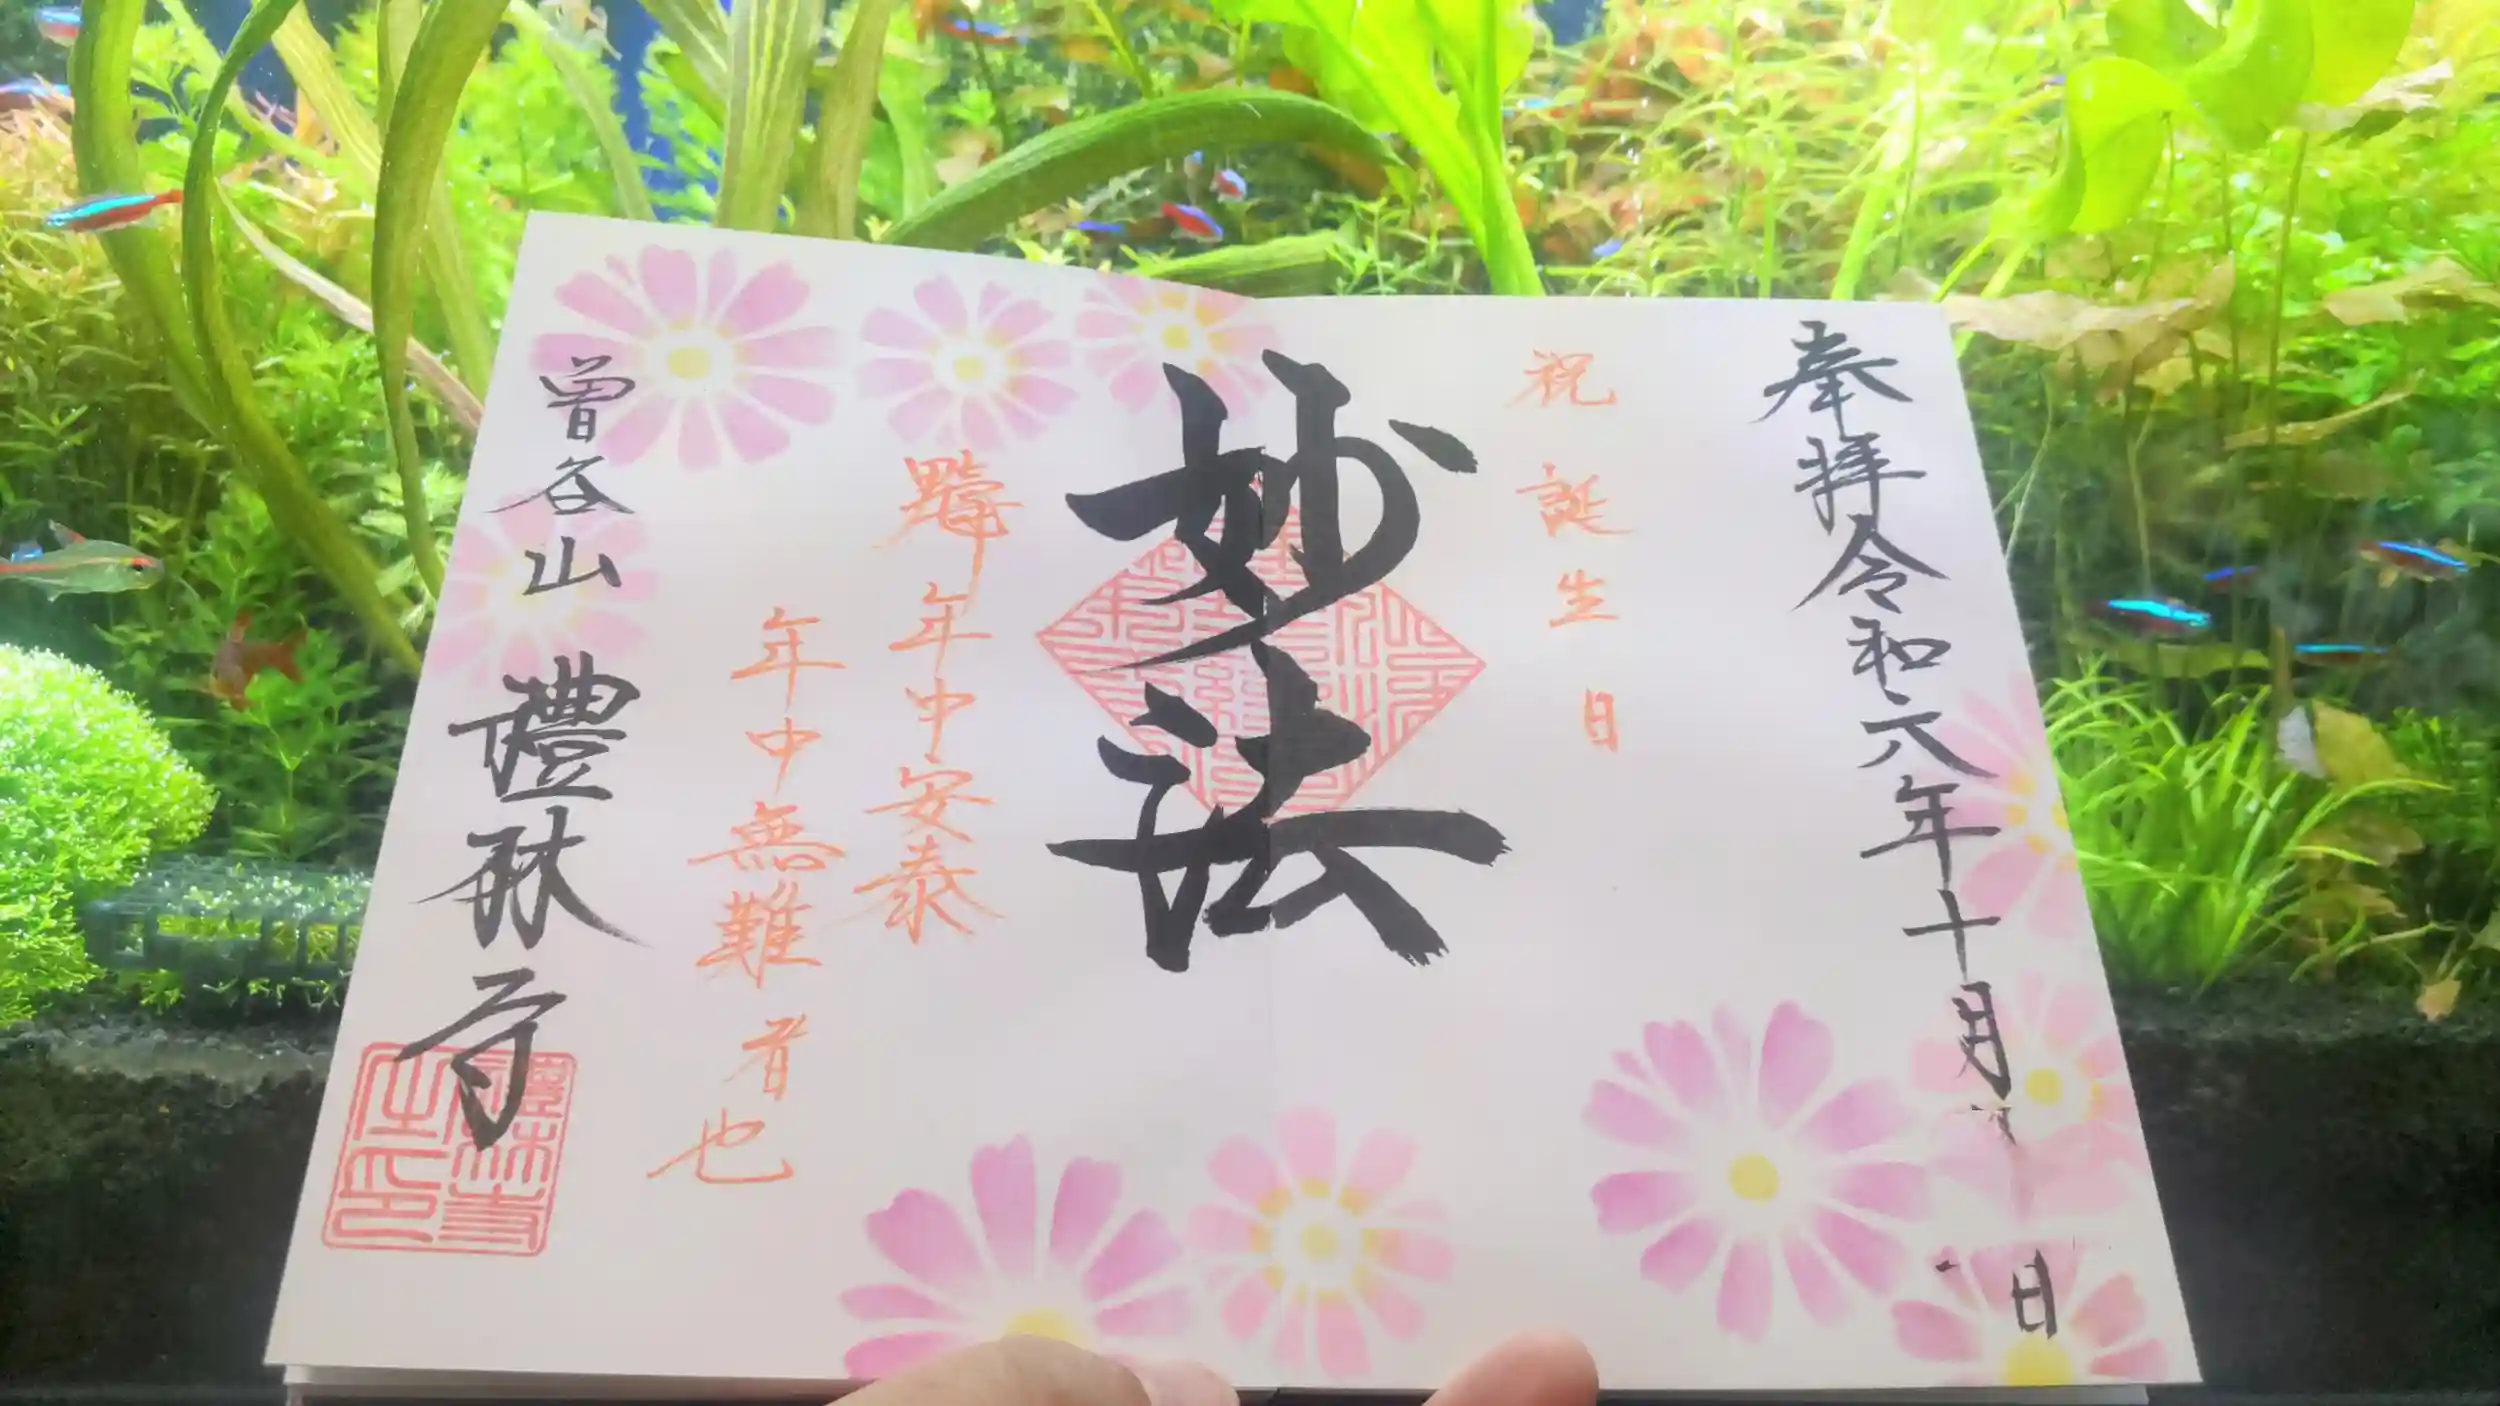 奉拝令和六年十月
日
祝誕生日
妙法
年中安泰
年中無難者也
曽谷山
禮林寺
禮林寺
之印